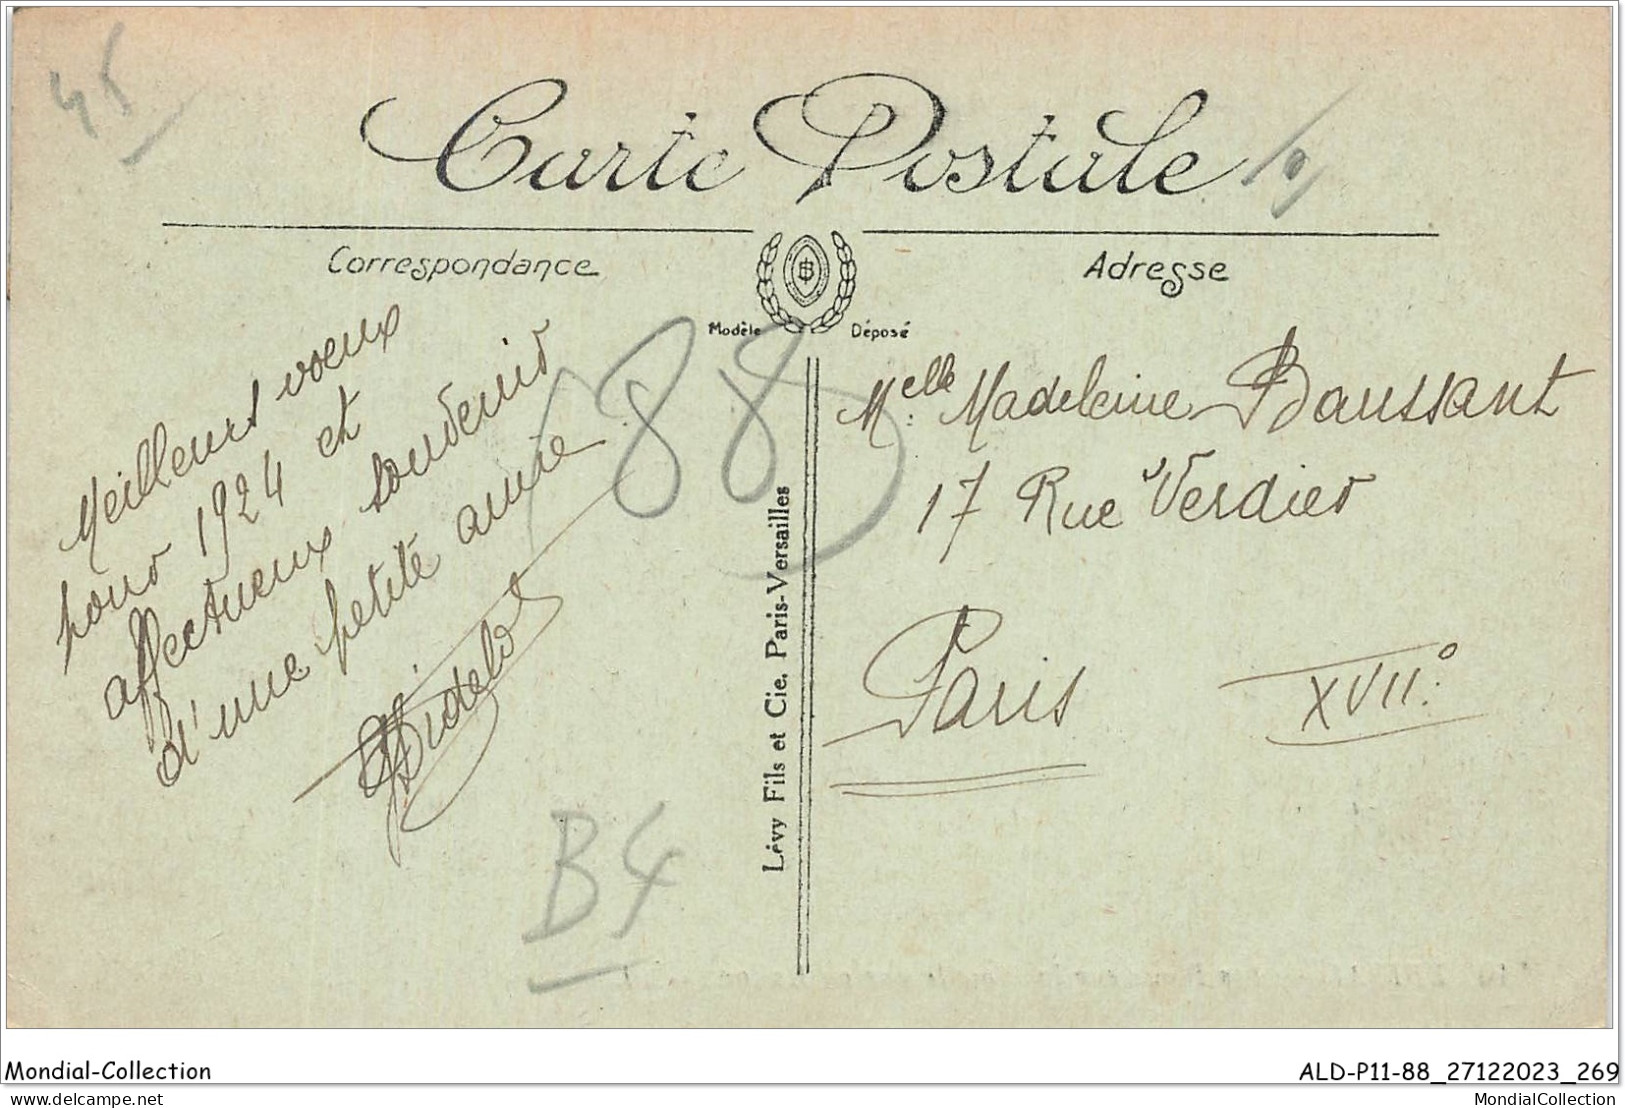 45
Carte Postale
Correspondance
Adresse
Modèle Déposé
Meilleurs voeux
pour 1924 et
affectueux souvenirs
d'une petite amie
88
B4
Lévy Fils et Cie, Paris-Versailles
Melle Madeleine Baussant
17 Rue Verdier
Paris XVII°
Mondial-Collection
ALD-P11-88_27122023_269
delcampe.net
MondialCollection